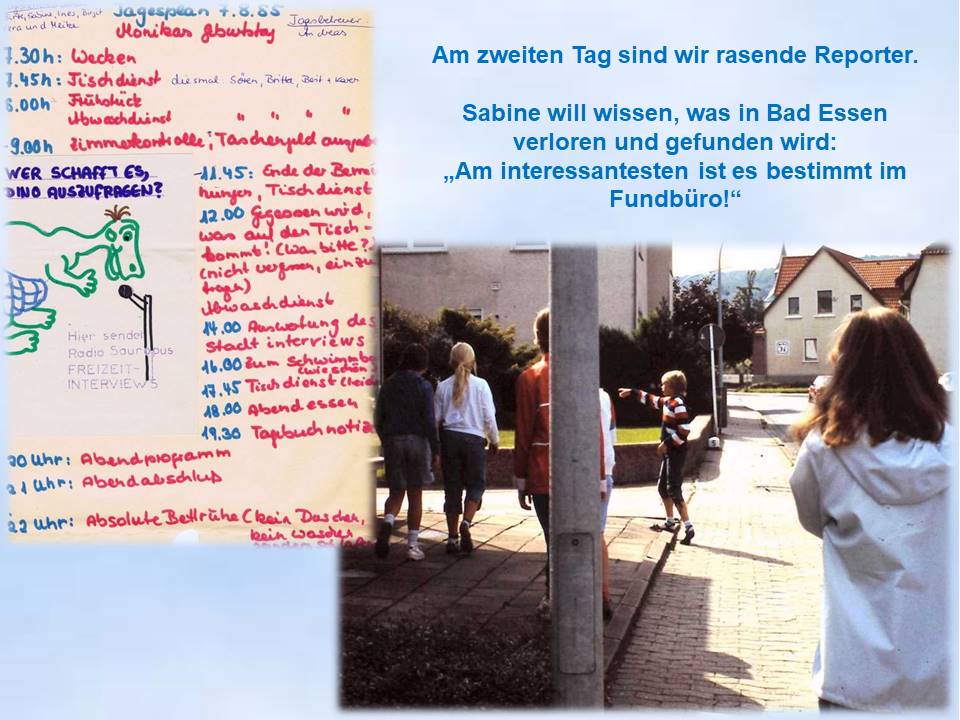 Sabine, Ines, Birgit
und Meike
Tagesplan 7.8.85
Tagesbetreuer:
Andreas
Monikas Geburtstag
7.30h: Wecken
7.45h: Tischdienst diesmal: Sören, Britta, Berit + Karen
8.00h Frühstück
Abwaschdienst " " " "
9.00h Zimmerkontrolle; Taschengeld
WER SCHAFFT ES,
DINO AUSZUFRAGEN?
Hier sendet
Radio Sauropus
FREIZEIT-
INTERVIEWS
11.45: Ende der Bemü-
hungen, Tischdienst
12.00 Gegessen wird,
was auf den Tisch-
kommt! (Wan bitte?)
(nicht vergessen, einzu
tragen)
Abwaschdienst
14.00 Auswertung des
Stadt interviews
16.00 Zum Schwimmba
(wie schön
17.45 Tischdienst
18.00 Abendessen
19.30 Tagebuchnotiz
00 Uhr: Abendprogramm
21 Uhr: Abendabschluß
22 Uhr: Absolute Bettruhe (kein Duschen,
kein waschen
Am zweiten Tag sind wir rasende Reporter.
Sabine will wissen, was in Bad Essen
verloren und gefunden wird:
„Am interessantesten ist es bestimmt im
Fundbüro!“